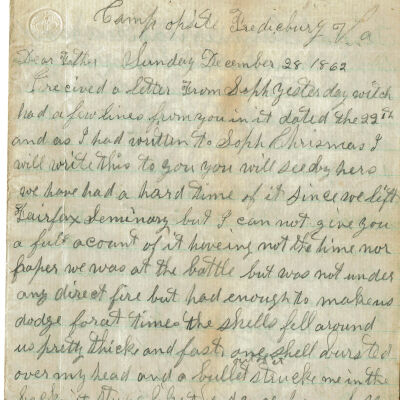 Camp opsite Fredicburg Va
Dear Father Sunday December 28 1862
I recived a letter From Soph yesterday witch
had a few lines from you in it dated the 22th
and as I had written to Soph Chrismas I
will write this to you you will see by hers
we have had a hard time of it since we left
Fairfax Seminary but I can not give you
a full acount of it haveing not the time nor
paper we was at the battle but was not under
any direct fire but had enough to make us
dodge for at times the shells fell around
us pretty thick and fast one shell bursted
over my head and a bullet out of it strucke me in the